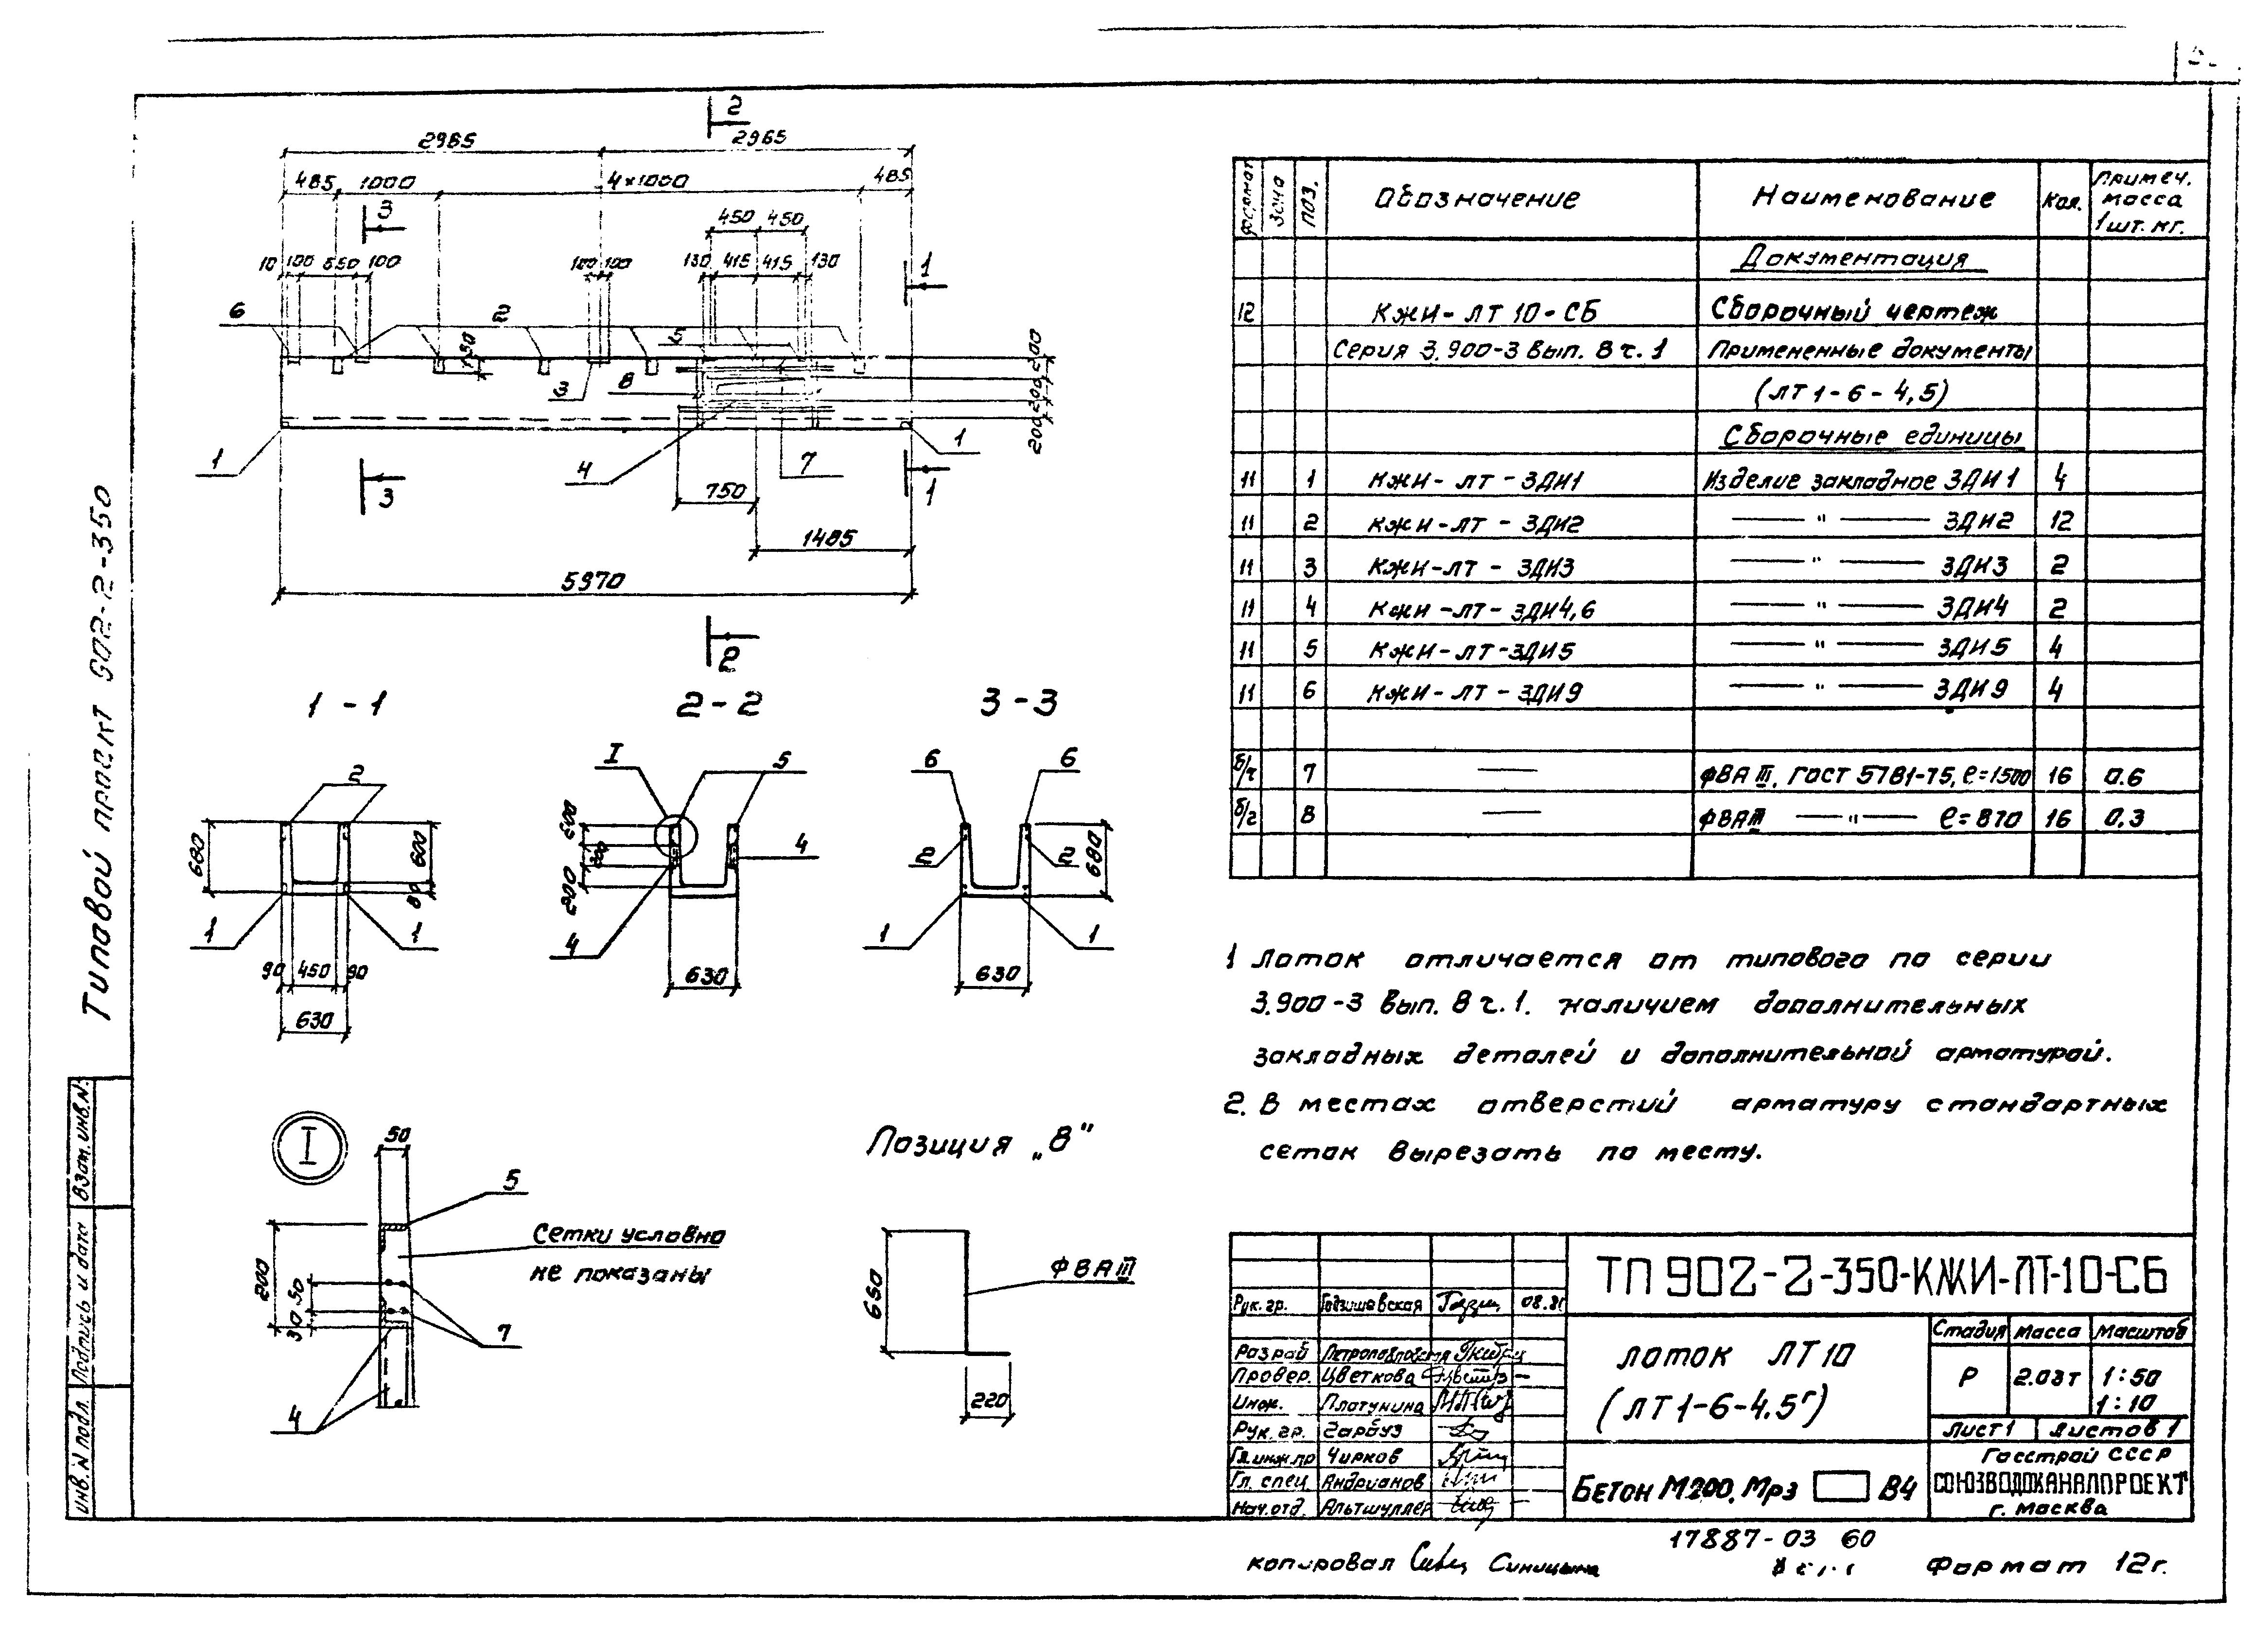 Типовой проект 902-2-350
2
2985
2985
485
1000
4×1000
485
3
450
450
1
10
100
650
100
100
100
130
415
415
130
6
2
5
130
200
3
8
200
200
1
4
7
1
3
750
1
1485
5970
2
1-1
2-2
3-3
2
I
5
6
6
680
600
80
200
200
4
2
2
680
1
1
4
1
1
90
450
90
630
630
630
I
50
5
Сетки условно
не показаны
200
50
30
7
4
Позиция „8"
650
ф8АIII
220
Формат
Зона
Поз.
Обозначение
Наименование
Кол.
Примеч. масса 1шт. кг.
Документация
12 КЖИ-ЛТ 10-СБ Сборочный чертеж
Серия 3.900-3 вып. 8 ч. 1 Примененные документы
(ЛТ 1-6-4,5)
Сборочные единицы
11 1 КЖИ-ЛТ-ЗДИ1 Изделие закладное ЗДИ1 4
11 2 КЖИ-ЛТ-ЗДИ2 — " — ЗДИ2 12
11 3 КЖИ-ЛТ-ЗДИ3 — " — ЗДИ3 2
11 4 КЖИ-ЛТ-ЗДИ4,6 — " — ЗДИ4 2
11 5 КЖИ-ЛТ-ЗДИ5 — " — ЗДИ5 4
11 6 КЖИ-ЛТ-ЗДИ9 — " — ЗДИ9 4
б/ч 7 — ф8АIII, ГОСТ 5781-75, ℓ=1500 16 0.6
8 — ф8АIII — " — ℓ=870 16 0.3
1 Лоток отличается от типового по серии
3.900-3 вып. 8 ч. 1. наличием дополнительных
закладных деталей и дополнительной арматурой.
2. В местах отверстий арматуру стандартных
сеток вырезать по месту.
ТП 902-2-350-КЖИ-ЛТ-10-СБ
Рук. гр. 08.81
Разраб
Провер. Цветкова
Инж. Платунина
Рук. гр. Гарбуз
Гл. инж. пр Чирков
Гл. спец. Андрианов
Нач. отд. Альтшуллер
Лоток ЛТ10
(ЛТ1-6-4.5г)
Стадия Масса Масштаб
Р 2.03т 1:50
1:10
Лист 1 Листов 1
Бетон М200, Мрз В4
Госстрой СССР
СОЮЗВОДОКАНАЛПРОЕКТ
г. Москва
Взам. инв. N
Подпись и дата
Инв. N подл.
17887-03 60
копировал Синицына
Формат 12г.